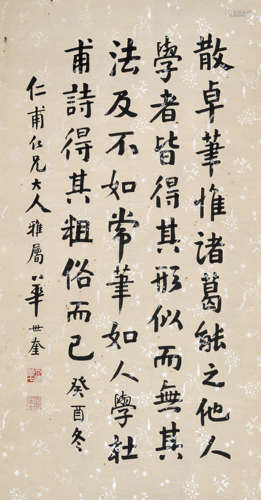 散卓筆惟諸葛能之他人
學者皆得其形似而無其
法反不如常筆如人學杜
甫詩得其粗俗而已 癸酉冬
仁甫仁兄大人雅屬 華世奎